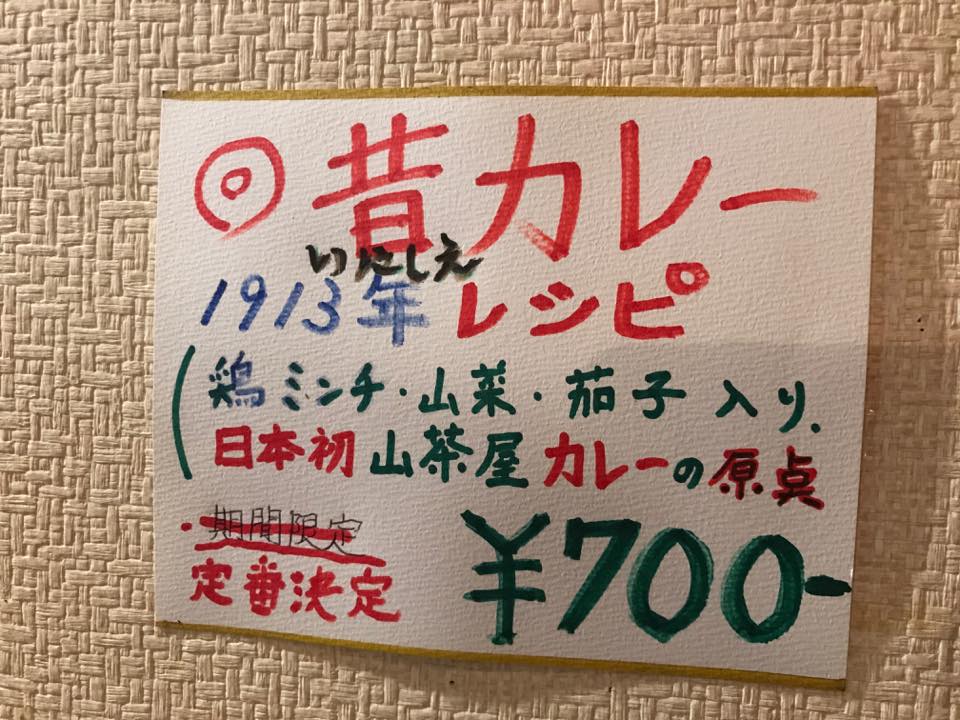 ◎昔カレー
いにしえ
1913年レシピ
鶏ミンチ・山菜・茄子入り.
日本初山茶屋カレーの原点
・期間限定
定番決定
¥700-